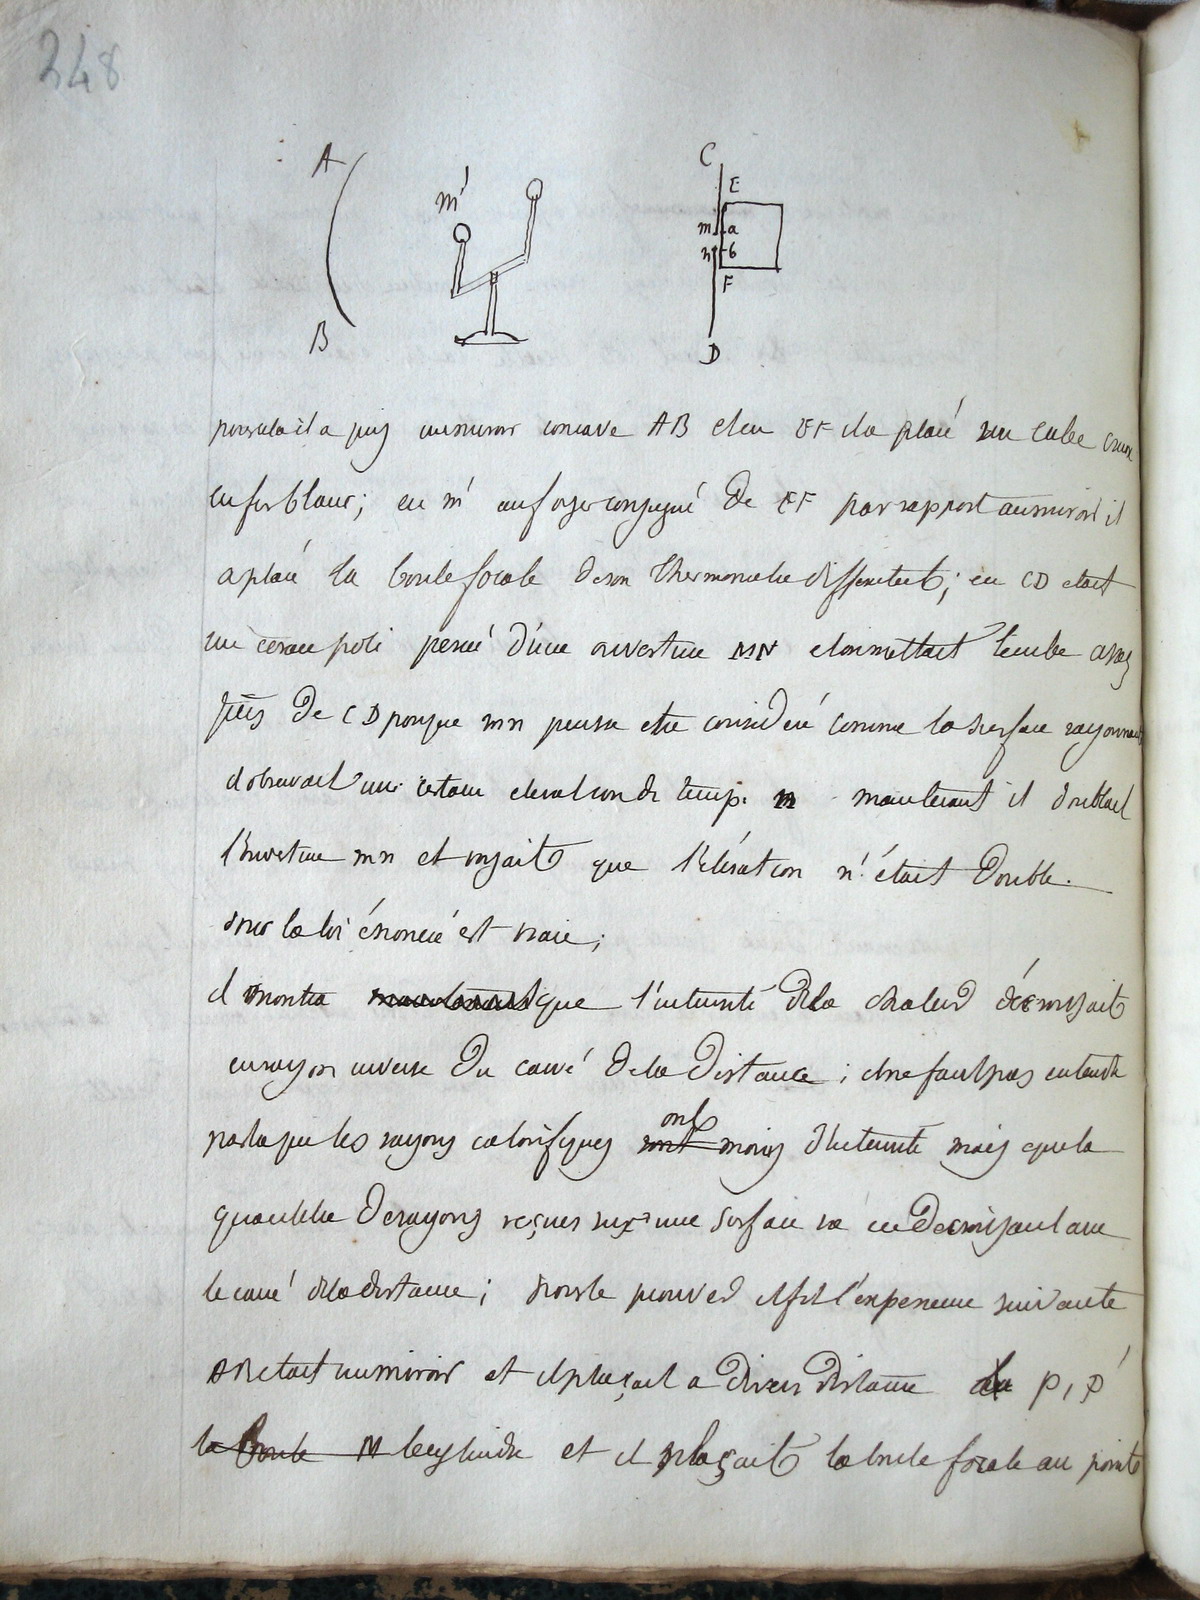 248
A
B
m'
C
E
m a
n b
F
D
pour cela il a pris un miroir concave AB et en EF il a placé un cube creux
en fer blanc; en m' au foyer conjugué de EF par rapport au miroir il
a placé la boule focale de son thermometre differentiel; en CD etait
un ecran poli percé d'une ouverture MN et on mettait le cube assez
près de CD pour que mn puisse etre consideré comme la surface rayonnant
il observait une certaine elevation de temp. maintenant il doublait
l'ouverture mn et voyait que l'élévation n' était double.
donc la loi énoncée est vraie;
il montra maintenant que l'intensité de la chaleur décroissait
en rayon inverse du carré de la distance; il ne faut pas entendre
par la que les rayons calorifiques sont ont moins d'intensité mais que la
quantité de rayons reçues sur une surface va en decroissant avec
le carré de la distance; pour le prouver il fit l'experience suivante
AB etait un miroir et il plaçait a divers distance P, P'
la boule M le cylindre et il plaçait la boule focale au point